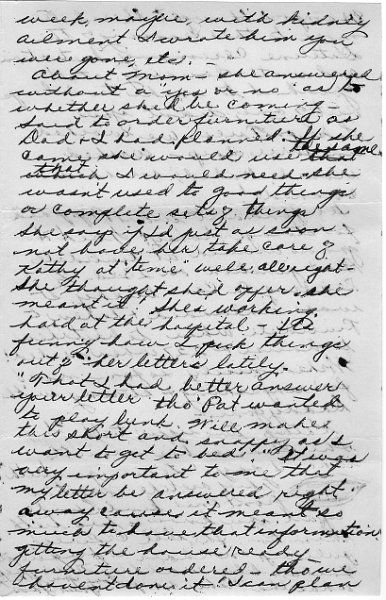 week, maybe, with kidney
ailment. I wrote him you
were gone, etc.
About Mom - she answered
without a "yes or no" as to
whether she'd be coming -
said to order furniture as
Dad & I had planned. If she
came she would use the same
that I would need she
wasn't used to good things
or complete sets of things
She say if I'd just as soon
not have her take care of
Kathy at time "well, allright -
She thought she'd offer. she
meant it. She's working
hard at the hospital - It's
funny how I pick things
out of her letters lately.
"That I had better answer
your letter tho' Pat wanted
to play bunk. Will make
this short and snappy as I
want to get to bed." It was
very important to me that
my letter be answered right
away cause it meant so
much to have that information
getting the house ready
furniture ordered - tho we
haven't done it! I can plan